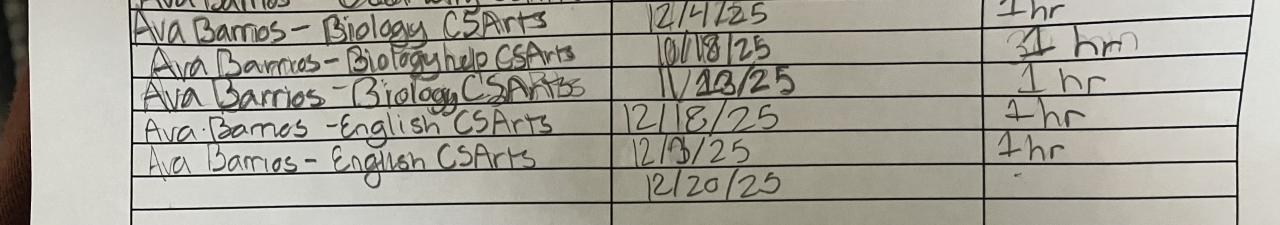 Ava Barrios - Biology CSArts 12/4/25 1hr
Ava Barrios - Biology help CSArts 10/18/25 1 hr
Ava Barrios - Biology CSArts 11/13/25 1 hr
Ava Barrios - English CSArts 12/18/25 1hr
Ava Barrios - English CSArts 12/3/25 1hr
12/20/25